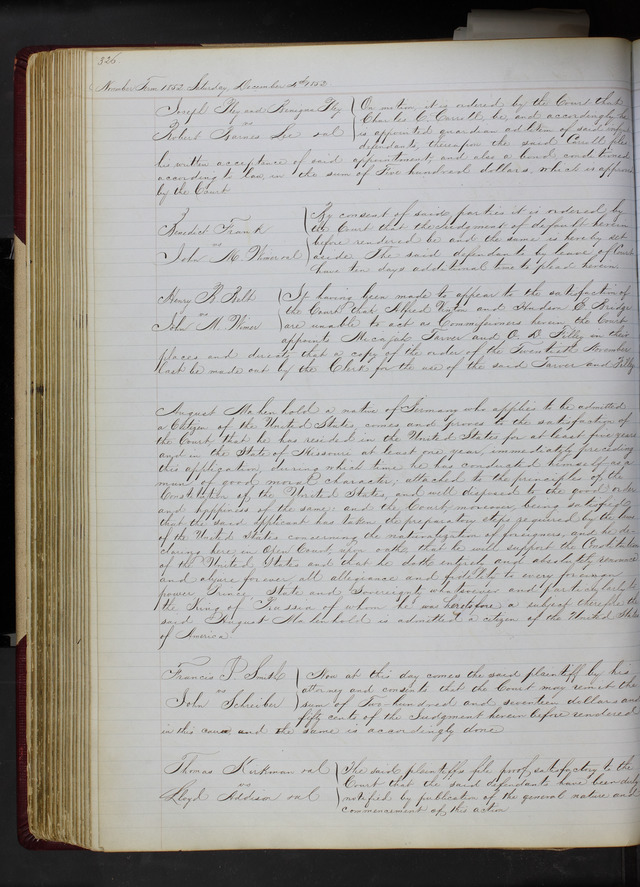 326
November Term 1852 Saturday, December 4th 1852
Joseph Philip and Benigne Philip
vs
Robert Barnes Lee et al
On motion, it is ordered by the Court that
Charles C. Carroll be, and accordingly he
is appointed guardian ad litem of said infant
defendants, thereupon the said Carroll files
his written acceptance of said appointment, and also a bond conditioned
according to law, in the sum of Five hundred dollars, which is approved
by the Court
Benedict Frank
vs
John M. Wimer et al
By consent of said parties it is ordered by
the Court that the Judgment of default herein
before rendered be and the same is hereby set
aside. The said defendants by leave of Court
have ten days additional time to plead herein
Henry B. Belt
vs
John M. Wimer
It having been made to appear to the satisfaction of
the Court that Alfred Vinton and Hudson E. Bridge
are unable to act as Commissioners herein the Court
appoints Micajah Tarver and O. D. Filley in their
places and directs that a copy of the order of the Twentieth November
last be made out by the Clerk for the use of the said Tarver and Filley
August Mahenhold a native of Germany who applies to be admitted
a Citizen of the United States, comes and proves to the satisfaction of
the Court, that he has resided in the United States for at least five years
and in the State of Missouri at least one year, immediately preceding
this application, during which time he has conducted himself as a
man of good moral character, attached to the principles of the
Constitution of the United States, and well disposed to the good order
and happiness of the same; and the Court, moreover, being satisfied
that the said applicant has taken the preparatory steps required by the laws
of the United States concerning the naturalization of foreigners, and he de-
claring here, in Open Court, upon oath, that he will support the Constitution
of the United States and that he doth entirely and absolutely renounce
and abjure forever all allegiance and fidelity to every foreign
power, Prince, State and Sovereignty whatsoever and particularly to
the King of Prussia of whom he was heretofore a subject therefore the
said August Mahenhold is admitted a citizen of the United States
of America.
Francis P. Smith
vs
John Schreiber
Now at this day comes the said plaintiff by his
attorney and consents that the Court may remit the
sum of Two hundred and seventeen dollars and
fifty cents of the Judgment herein before rendered
in this cause and the same is accordingly done
Thomas Kirkman et al
vs
Lloyd Addison et al
The said plaintiffs file proof, satisfactory to the
Court that the said defendants have been duly
notified by publication of the general nature and
commencement of this action